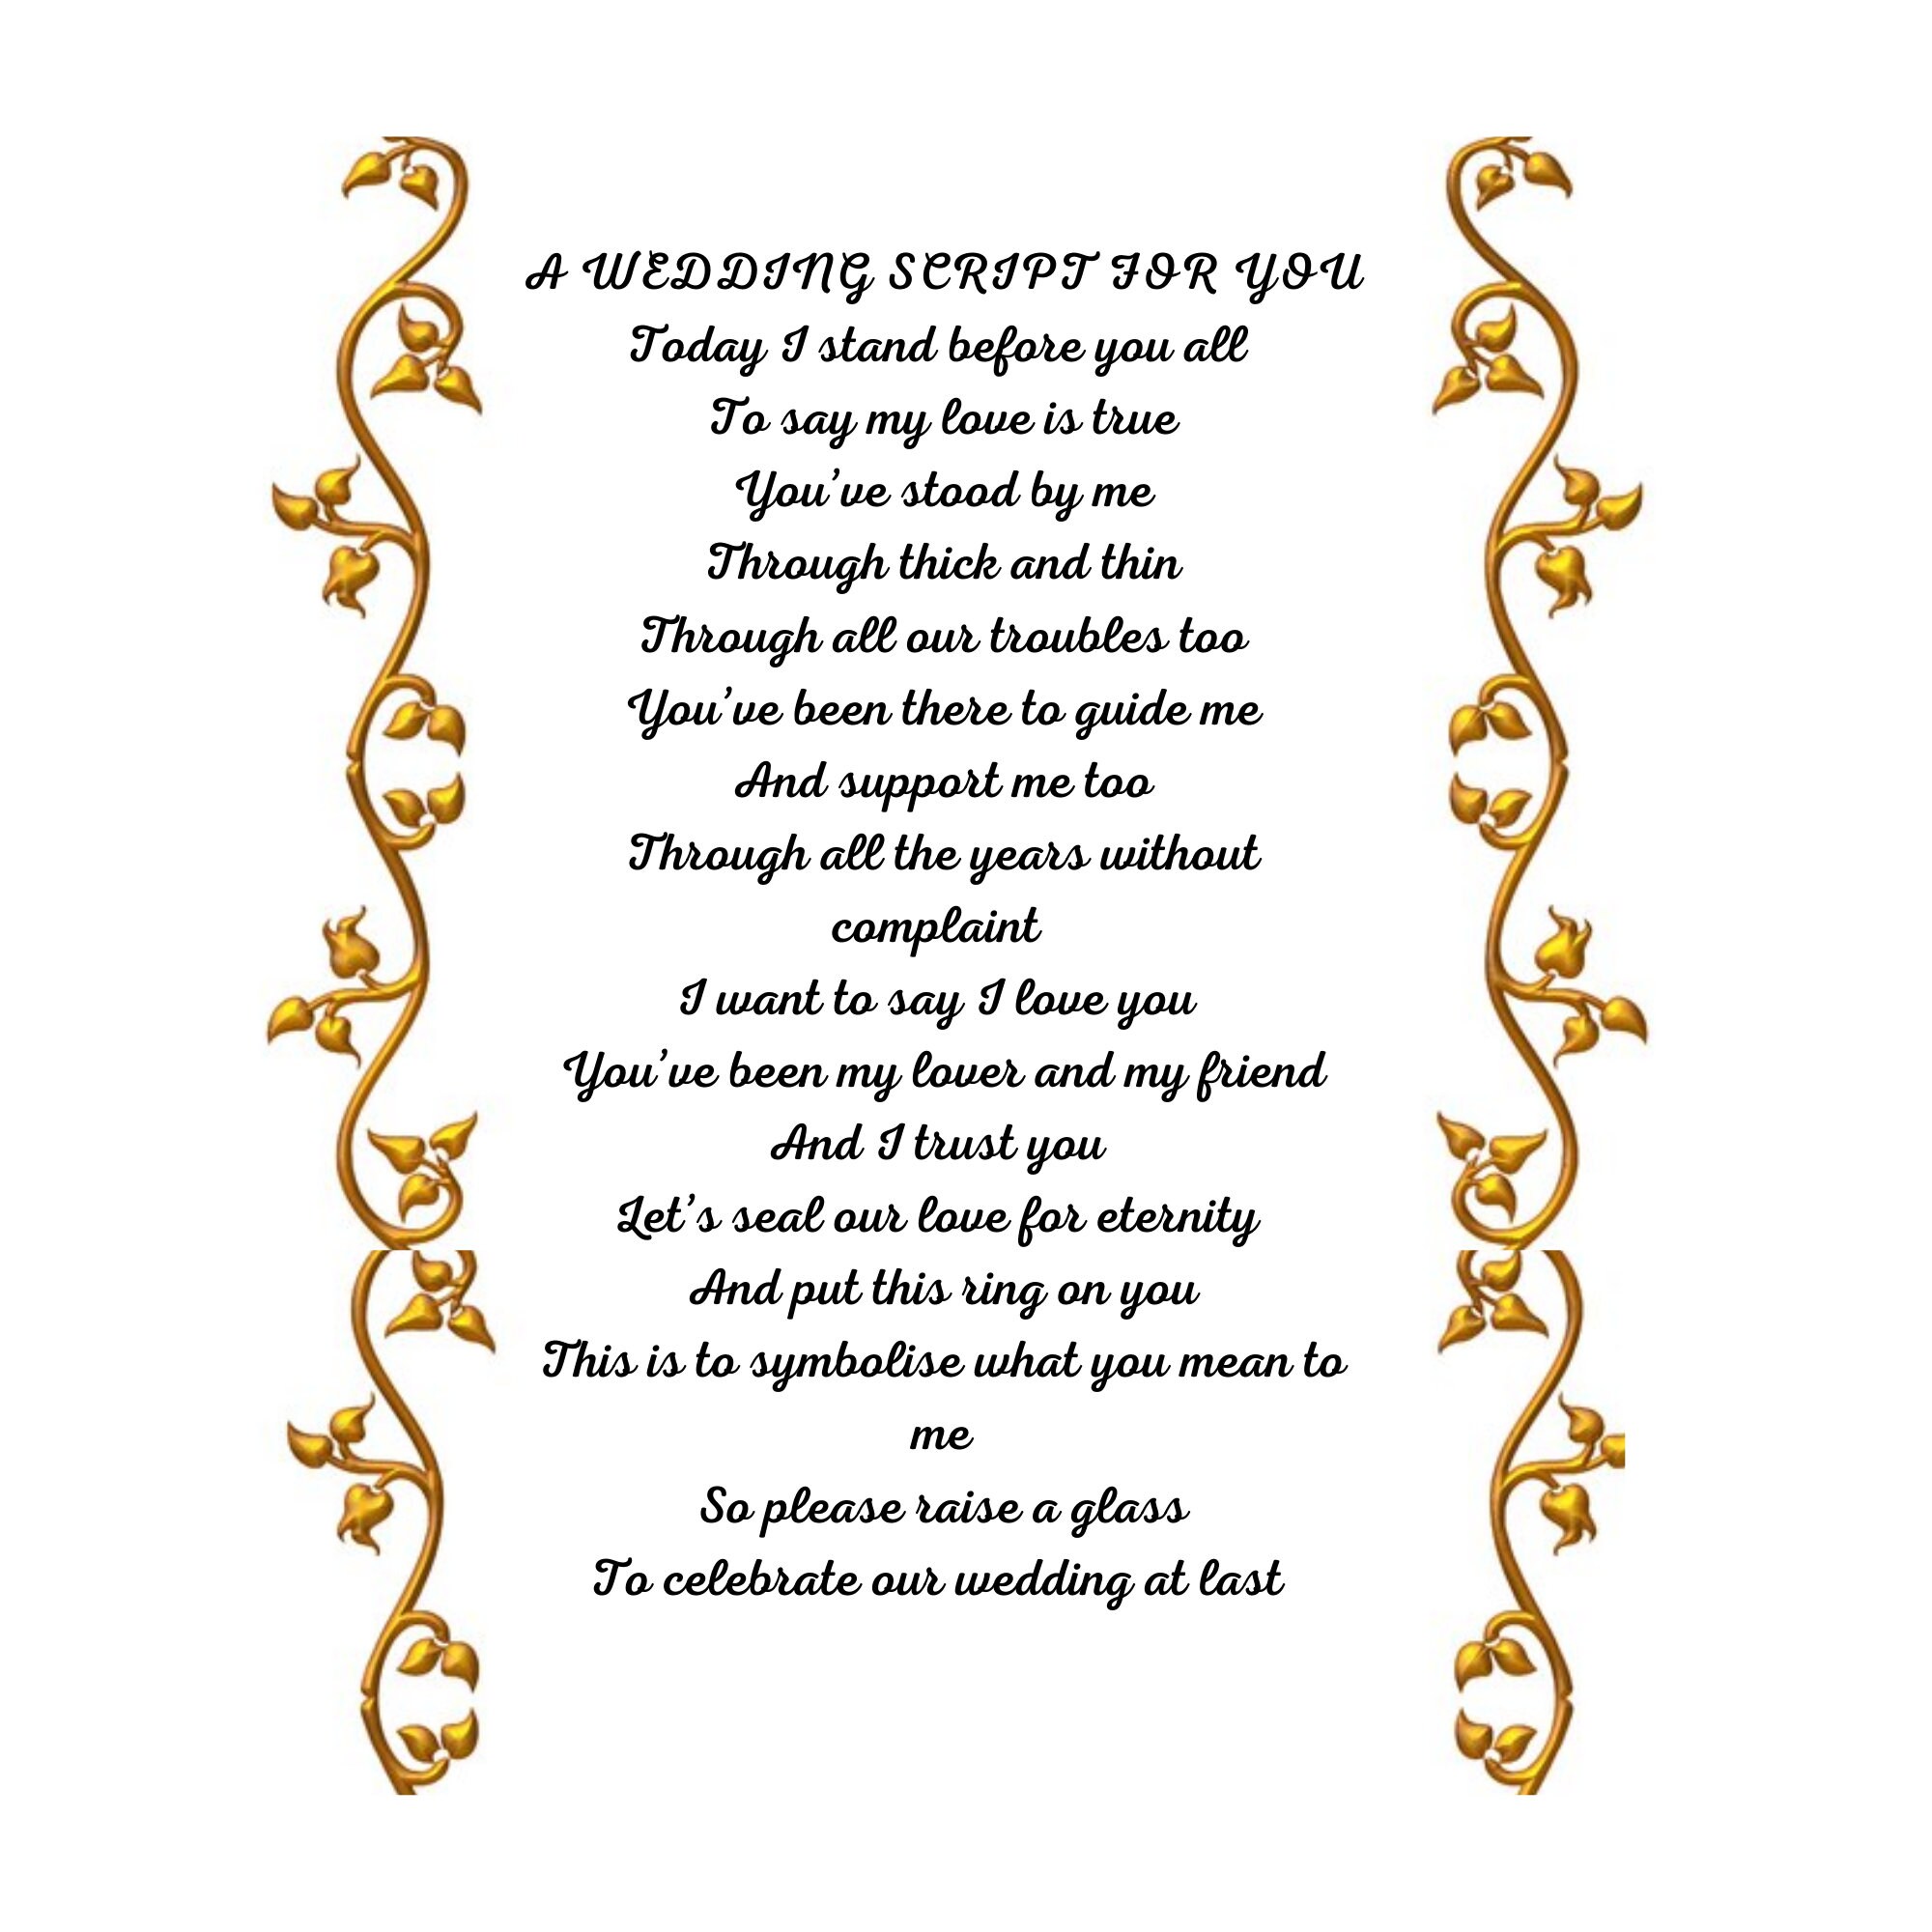 A WEDDING SCRIPT FOR YOU
Today I stand before you all
To say my love is true
You've stood by me
Through thick and thin
Through all our troubles too
You've been there to guide me
And support me too
Through all the years without
complaint
I want to say I love you
You've been my lover and my friend
And I trust you
Let's seal our love for eternity
And put this ring on you
This is to symbolise what you mean to
me
So please raise a glass
To celebrate our wedding at last